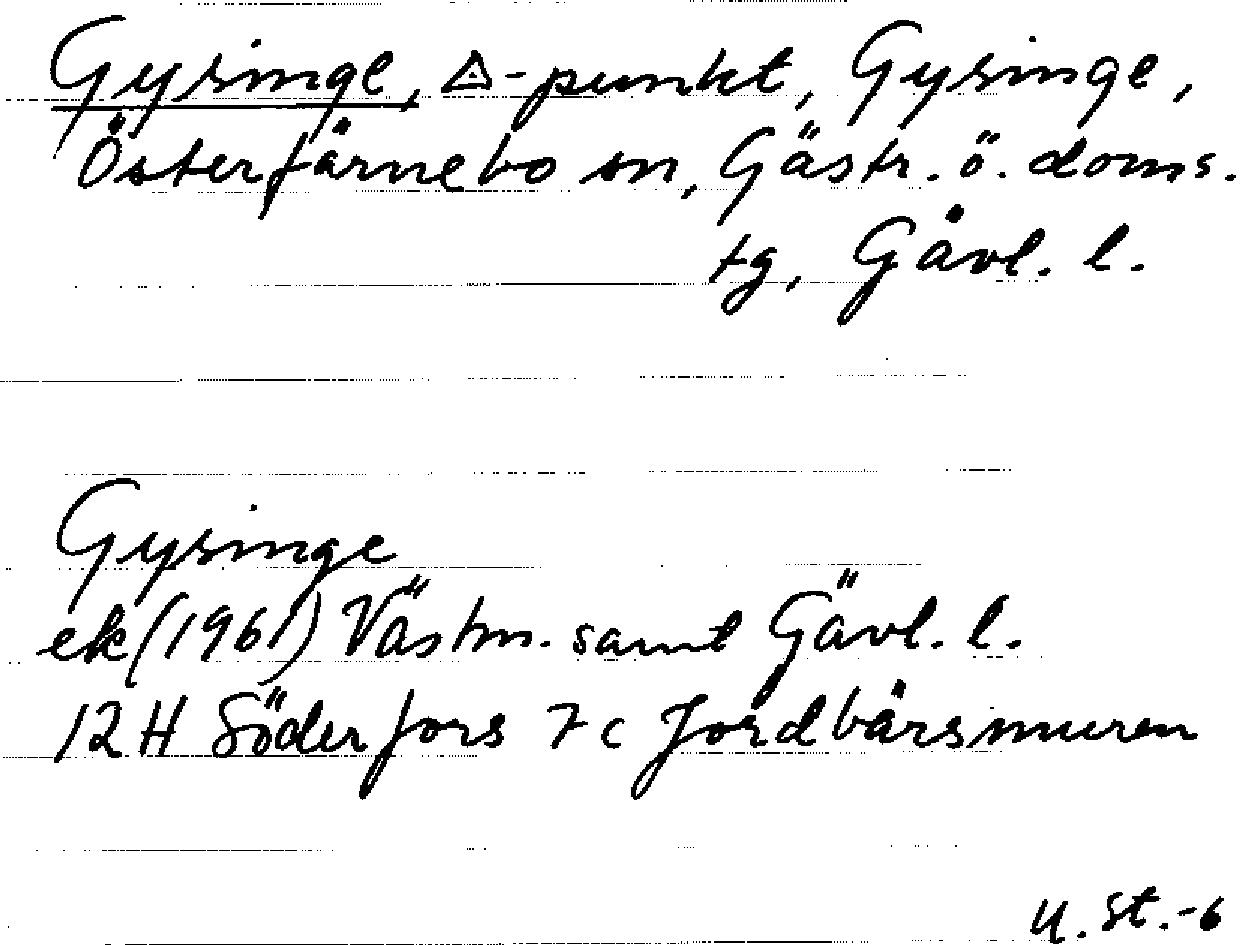 Gysinge, △-punkt, Gysinge,
Österfärnebo sn, Gästr. ö. doms.
tg, Gävl. l.
Gysinge
ek (1961) Västm. samt Gävl. l.
12 H Söderfors 7 c Jordbärsmuren
U. St.-6